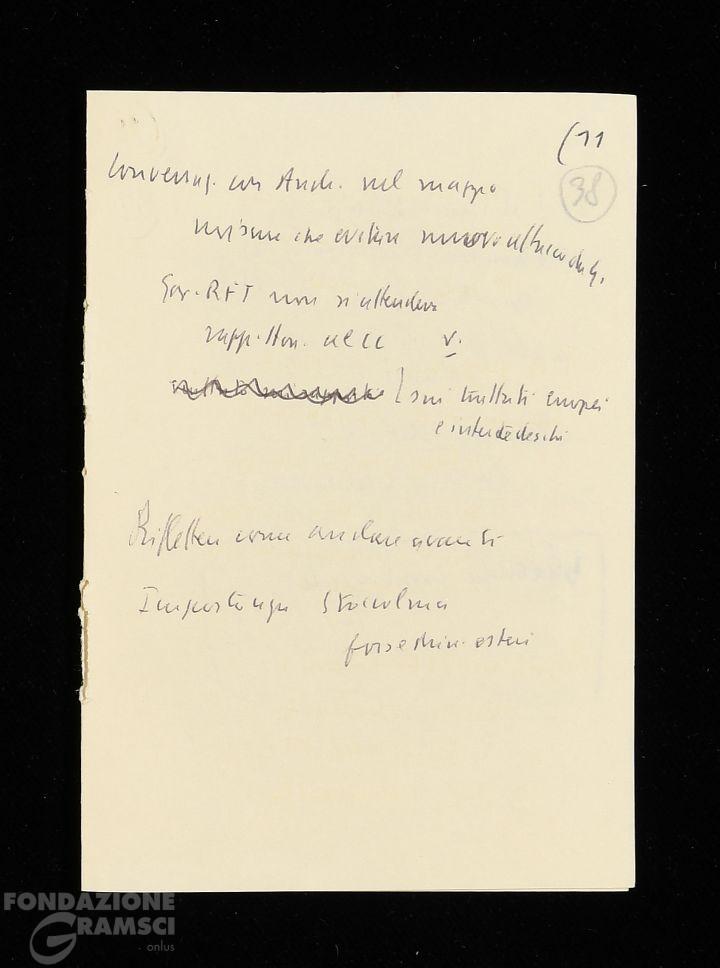 (11
38
Conversaz. con Andr. nel maggio
misure che evitino nuovo
Gov. RFT non si attendeva
rapp. Hon. al CC v.
sui trattati europei
e intertedeschi
Riflettere come andare avanti
Importanza Stoccolma
forse min. esteri
FONDAZIONE
GRAMSCI
onlus